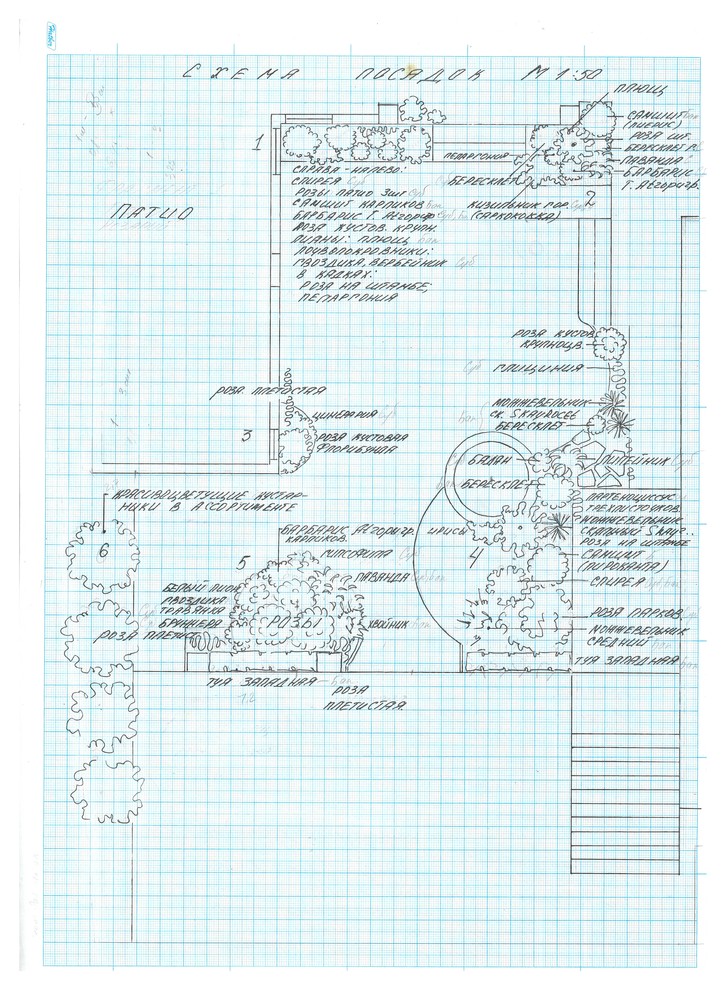 СХЕМА ПОСАДОК М 1:50
ПЛЮЩ
САМШИТ
(ПИЕРИС)
РОЗА ШТ.
БЕРЕСКЛЕТ
ЛАВАНДА
БАРБАРИС
Т. Атропург.
1
ПЕЛАРГОНИЯ
БЕРЕСКЛЕТ
КИЗИЛЬНИК ГОР.
(САРКОКОККА)
2
СПРАВА-НАЛЕВО:
СПИРЕЯ
РОЗЫ ПАТИО 3шт
САМШИТ КАРЛИКОВ
БАРБАРИС Т. Атроpur
РОЗА КУСТОВ. КРУПН.
ЛИАНЫ: ПЛЮЩ
ПОЧВОПОКРОВНИКИ:
ГВОЗДИКА, ВЕРБЕЙНИК
В КАДКАХ:
РОЗА НА ШТАМБЕ,
ПЕЛАРГОНИЯ
ПАТИО
РОЗА КУСТОВ
КРУПНОЦВ.
ГЛИЦИНИЯ
РОЗА ПЛЕТИСТАЯ
МОЖЖЕВЕЛЬНИК
СК. Skyrocet
БЕРЕСКЛЕТ
ЦИНЕРАРИЯ
3
РОЗА КУСТОВАЯ
ФЛОРИБУНДА
БАДАН
ЛИЛЕЙНИК
БЕРЕСКЛЕТ
КРАСИВОЦВЕТУЩИЕ КУСТАР-
НИКИ В АССОРТИМЕНТЕ
ПАРТЕНОЦИССУС
ТРЕХЛИСТОЧКОВ.
МОЖЖЕВЕЛЬНИК
СКАЛЬНЫЙ Skyr..
РОЗА НА ШТАМБЕ
САМШИТ
(ПИРОКАНТА)
СПИРЕЯ
ИРИСЫ
4
БАРБАРИС Атропург.
КАРЛИКОВ.
5
6
ГИПСОФИЛА
ЛАВАНДА
БЕЛЫЙ ПИОН
ГВОЗДИКА
ТРАВЯНКА
БРУННЕРА
РОЗЫ
ХВОЙНИК
РОЗА ПЛЕТИС
РОЗА ПАРКОВ
МОЖЖЕВЕЛЬНИК
СРЕДНИЙ
ТУЯ ЗАПАДНАЯ
ТУЯ ЗАПАДНАЯ
РОЗА
ПЛЕТИСТАЯ